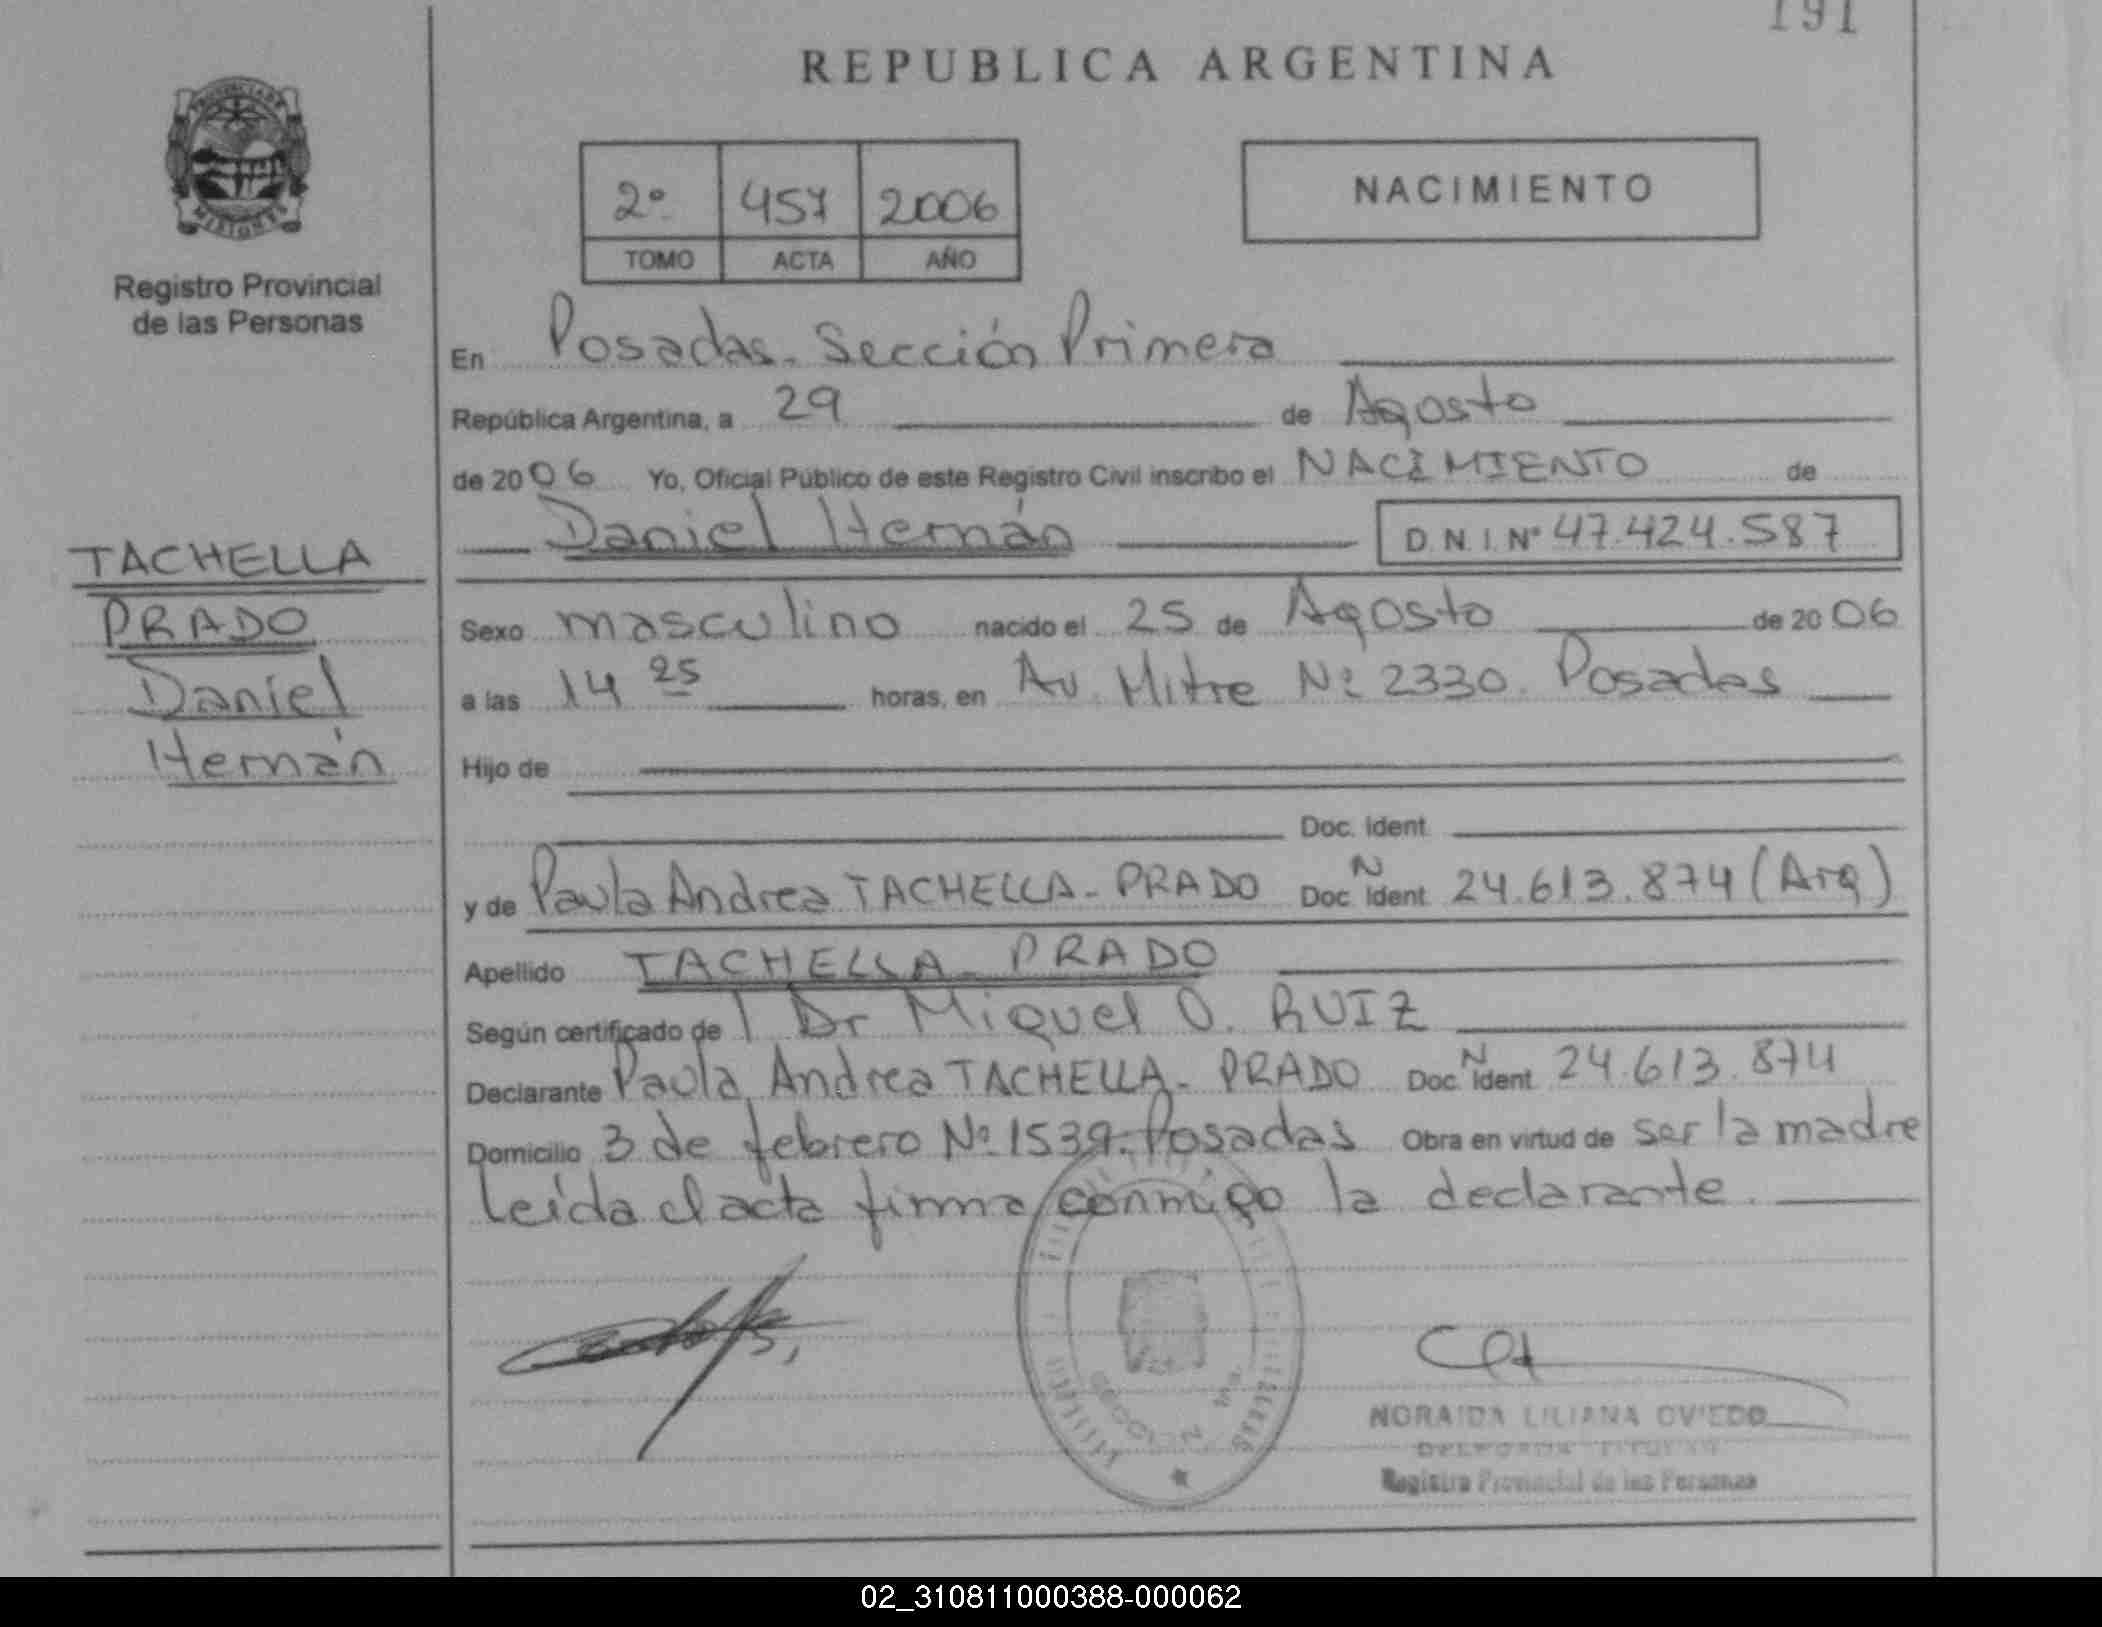 191
REPUBLICA ARGENTINA
MISIONES
Registro Provincial
de las Personas
2º 457 2006
TOMO ACTA AÑO
NACIMIENTO
En Posadas. Sección Primera
República Argentina, a 29 de Agosto
de 2006 Yo, Oficial Público de este Registro Civil inscribo el NACIMIENTO de
Daniel Hernán D.N.I. Nº 47.424.587
TACHELLA
PRADO
Daniel
Hernán
Sexo masculino nacido el 25 de Agosto de 2006
a las 14 25 horas, en Av. Mitre Nº 2330. Posadas
Hijo de
Doc. Ident.
y de Paula Andrea TACHELLA-PRADO Doc. N Ident. 24.613.874 (Arg)
Apellido TACHELLA-PRADO
Según certificado de l Dr Miguel O. RUIZ
Declarante Paula Andrea TACHELLA-PRADO Doc. N Ident. 24.613.874
Domicilio 3 de febrero Nº 1539. Posadas Obra en virtud de ser la madre
Leída el acta firma conmigo la declarante.
NORAIDA LILIANA OVIEDO
Registro Provincial de las Personas
02_310811000388-000062